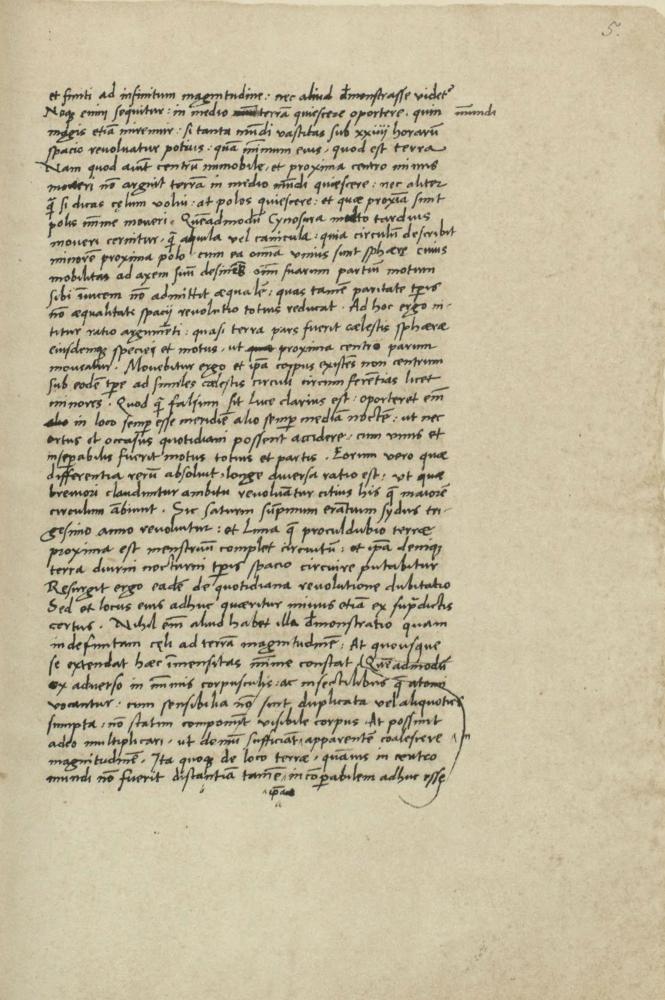 5.
et finiti ad infinitum magnitudinē: nec aliud demonstrasse videt᷑
Neqꝫ enim sequitur: in medio terrā quiescere oportere. quin mundi
magis etiā miremur: si tanta mūdi vastitas sub xxiiij horarū
spacio revoluatur potius: quā minimum eius, quod est terra
Nam quod aiūt centrū immobile, et proxima centro minus
moveri nō arguit terrā in medio mūdi quiescere: nec aliter
q̄ si dicas cęlum volui: at polos quiescere: et quae proxīa sunt
polis mīme moveri. Quēadmodū Cynosura multo tardius
moveri cernitur, q̄ aquila vel canicula: quia circulū describit
minorē proxima polo. cum ea omīa unius sunt sphærę cuius
mobilitas ad axem suū desinēs omī suarum partiū motum
sibi īuicem nō admittit æqualē: quas tamē paritate tp̄is
nō æqualitate spacij revolutio totius reducat. Ad hoc ergo ni-
titur ratio argumēti: quasi terra pars fuerit cælestis sphæræ
eiusdemqꝫ speciei et motus, ut proxima centro parum
moveatur. Movebitur ergo et ip̄a corpus existēs non centrum
sub eodē tp̄e ad similes cælestis circuli circūferētias licet
minores. Quod q̄ falsum sit luce clarius est: oporteret em̄
in loco semꝑ esse meridiē alio semꝑ mediā noctē: ut nec
ortus vel occasus quotidiani possent accidere. cum unus et
inseꝑabilis fuerit motus totius et partis. Eorum vero quæ
differentia rerū absolvit, longe diversa ratio est: ut quæ
breviori clauduntur ambitu revoluātur citius his q̄ maiorē
circulum ābiunt. Sic Saturni suꝑmum errātium sydus tri-
gesimo anno revoluitur: et Luna q̄ proculdubio terræ
proxima est menstruū complet circuitū: et ip̄a deniqꝫ
terra diurni nocturni tp̄is spacio circuire putabitur
Resurgit ergo eadē de quotidiana revolutione dubitatio
Sed et locus eius adhuc quæritur minus etiā ex sup̄dictis
certus. Nihil em̄ aliud habet illa demonstratio quam
indefinitam cęli ad terrā magnitudinē: At quousque
se extendat hæc īmensitas mīme constat. Quēadmodū
ex adverso in mīmis corpusculis: ac insectilibus q̄ atomi
vocantur: cum sensibilia nō sint duplicata vel aliquoties
sumpta: nō statim componūt visibile corpus. At possunt
adeo multiplicari, ut demū sufficiāt, apparentē coalescere in
magnitudinē. Ita quoqꝫ de loco terræ, quāvis in centro
mundi nō fuerit distantiā tamē, incōꝑabilem adhuc esse
ip̄am